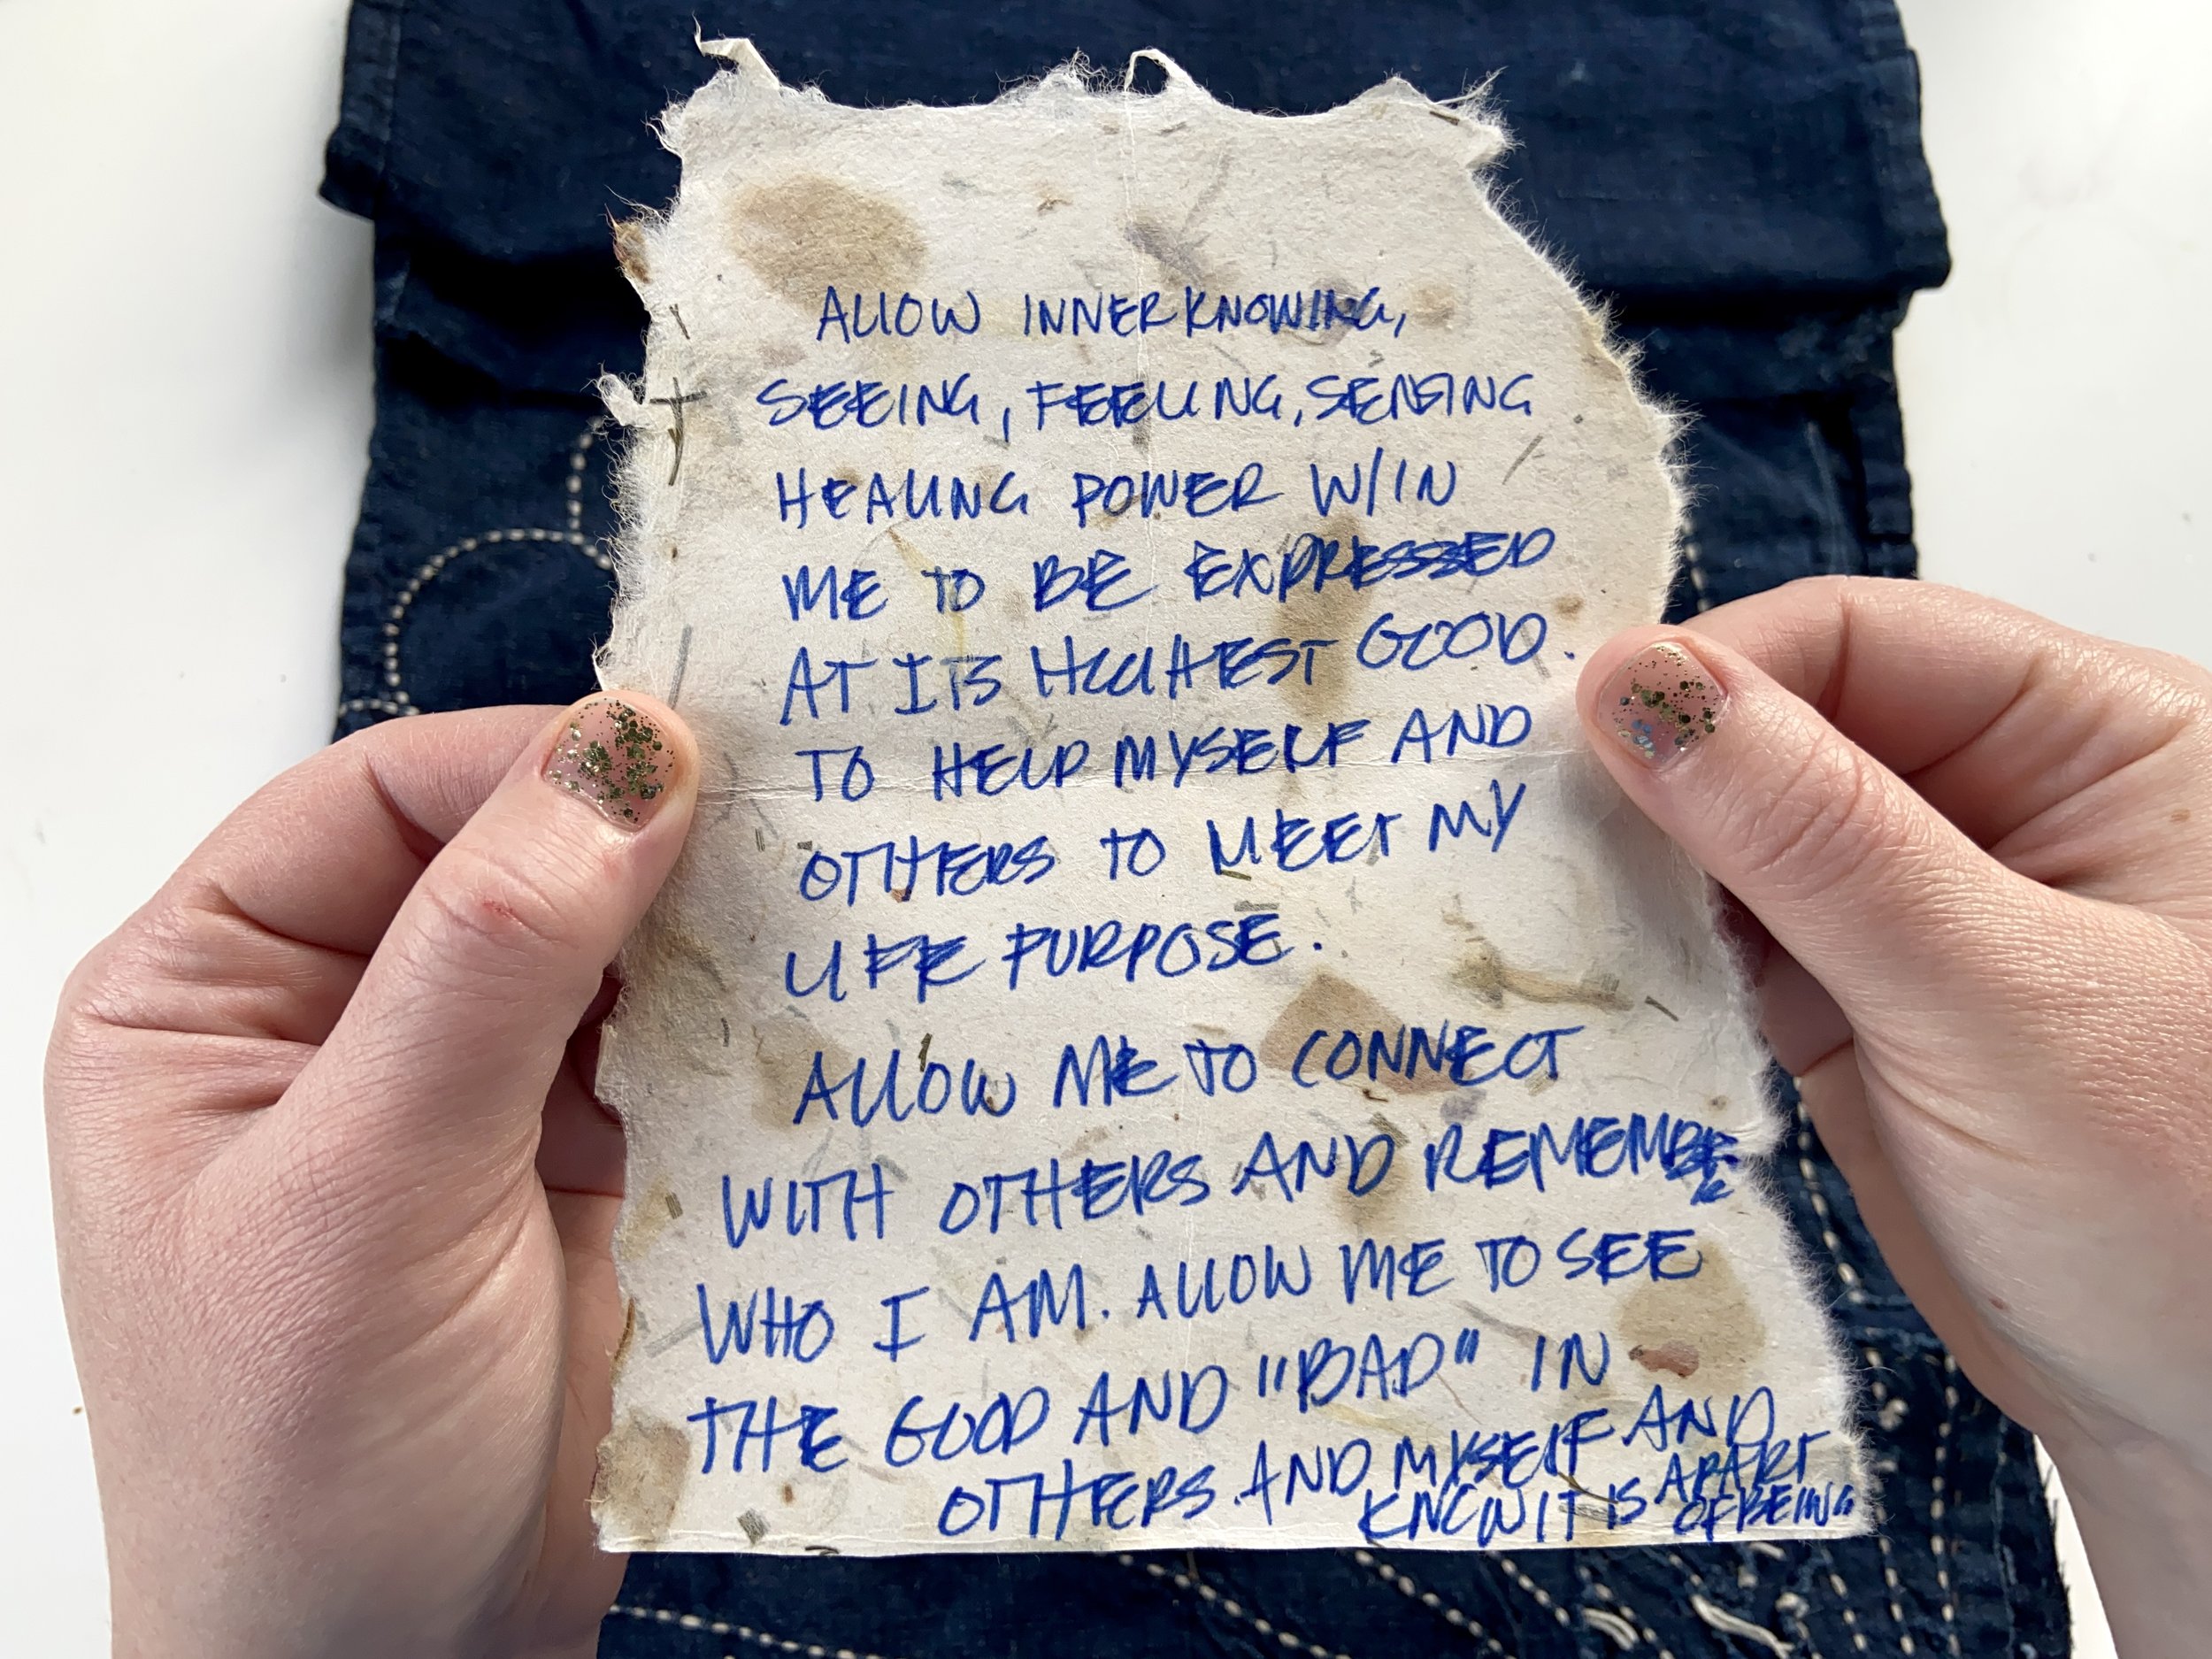 ALLOW INNER KNOWING,
SEEING, FEELING, SENSING
HEALING POWER W/IN
ME TO BE EXPRESSED
AT ITS HIGHEST GOOD.
TO HELP MYSELF AND
OTHERS TO MEET MY
LIFE PURPOSE.
ALLOW ME TO CONNECT
WITH OTHERS AND REMEMBER
WHO I AM. ALLOW ME TO SEE
THE GOOD AND "BAD" IN
OTHERS AND MYSELF AND
KNOW IT IS APART
OF BEING